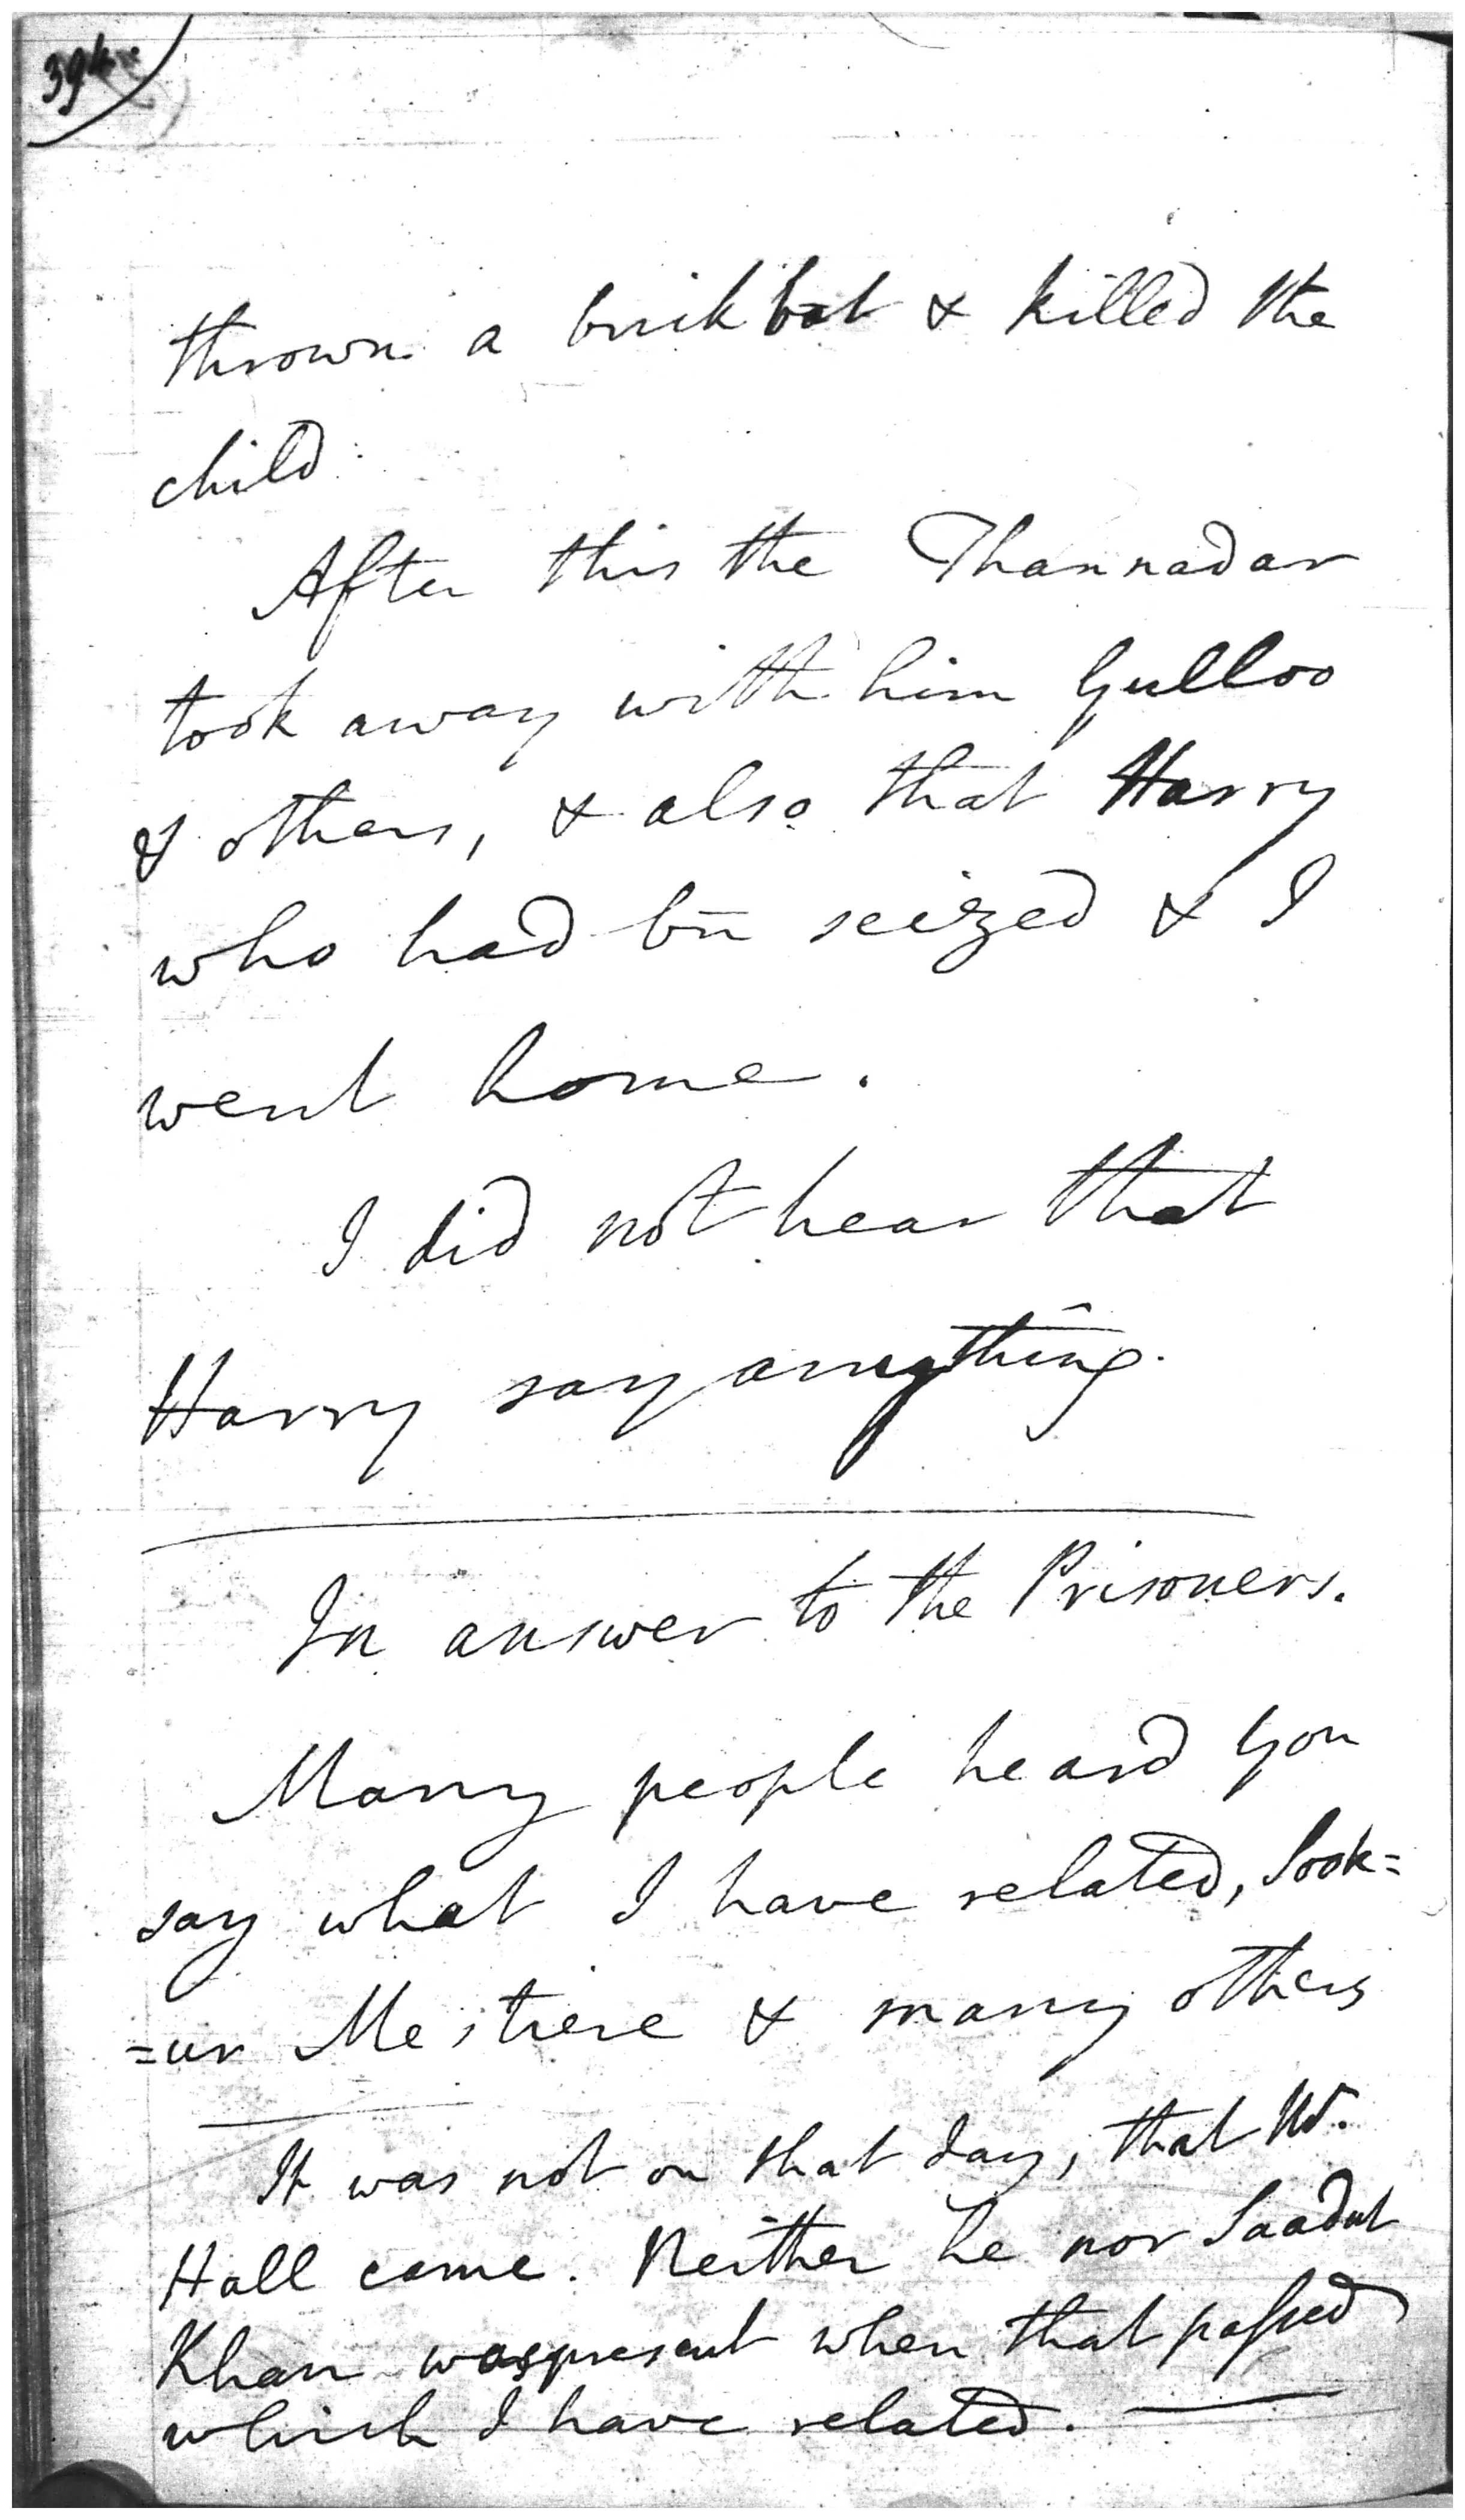 thrown a brickbat & killed the
child.
After this the Thannadar
took away with him Gulloo
& others, & also that Harry
who had bn seized & I
went home.
I did not hear that
Harry say anything.
In answer to the Prisoners.
Many people heard you
say what I have related, Sook=
=ur Mestree & many others
It was not on that day, that Mr.
Hall came. Neither he nor Saadut
Khan was present when that passed
which I have related.